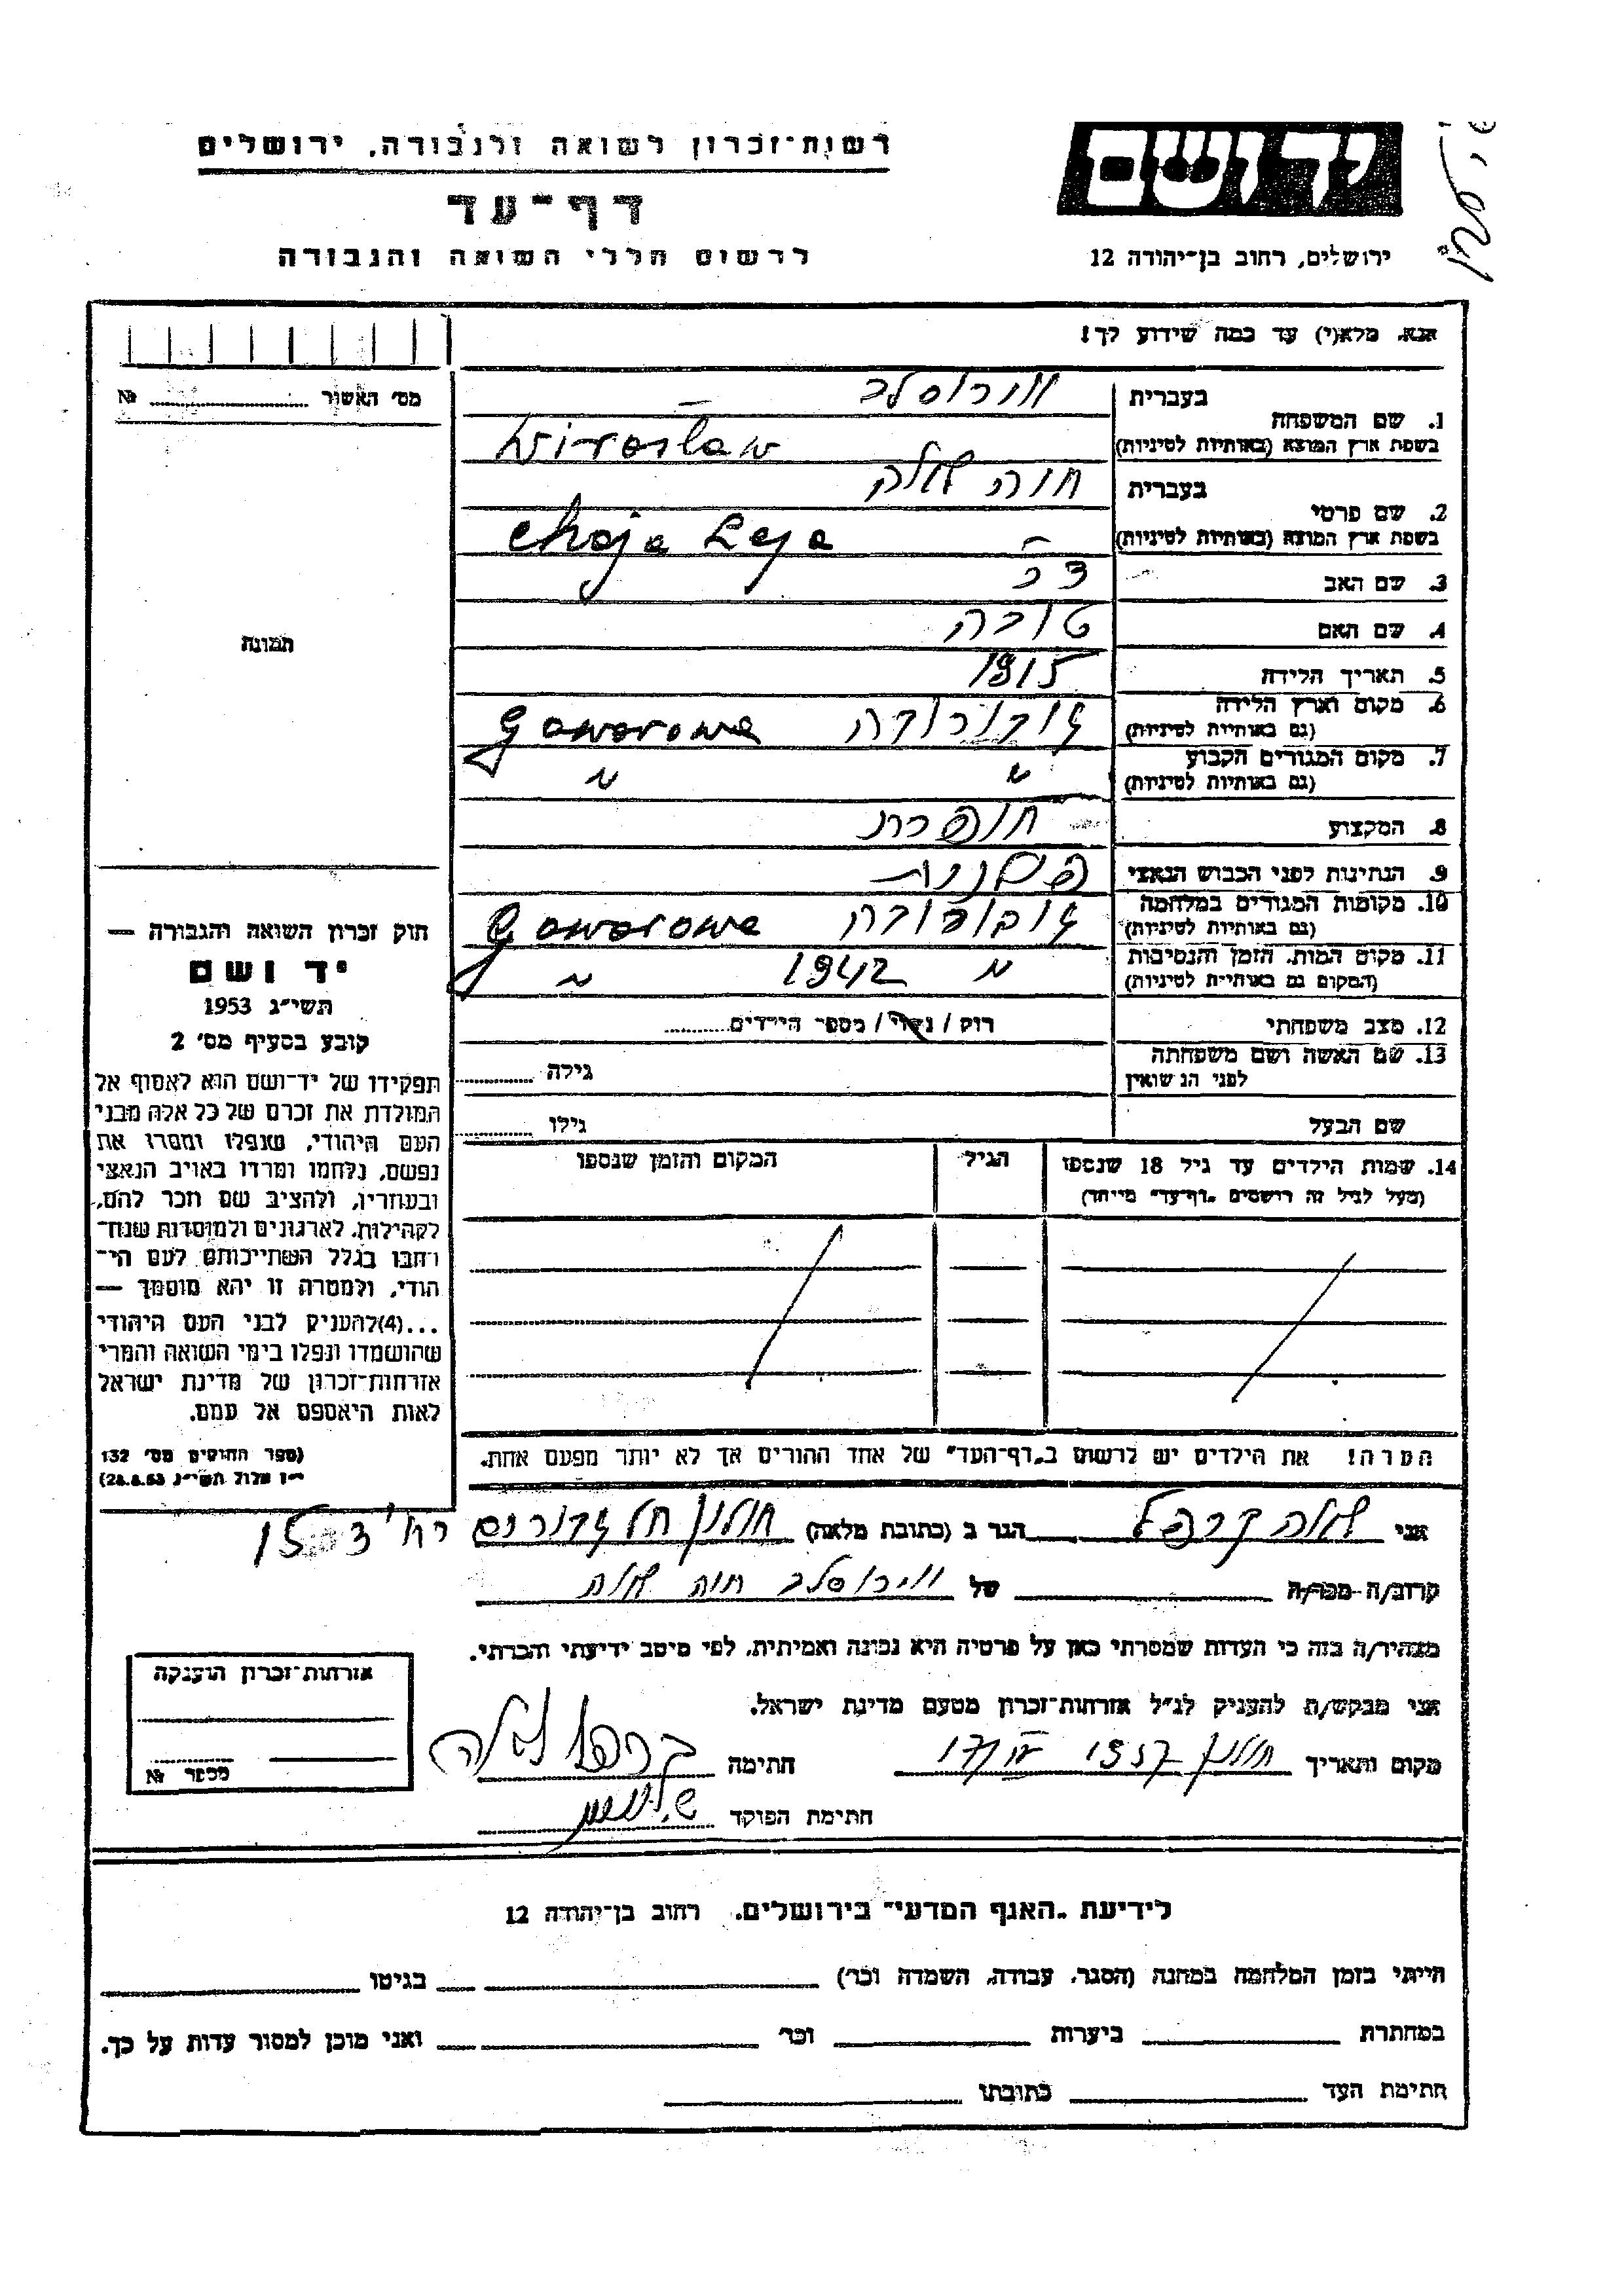 רשות-זכרון לשואה ולגבורה, ירושלים
דף-עד
לרשום חללי השואה והגבורה
יד ושם
ירושלים, רחוב בן-יהודה 12
אנא, מלא(י) עד כמה שידוע לך!
מס' האשור № 
1. שם המשפחה
בעברית
ווירוסלב
בשפת ארץ המוצא (באותיות לטיניות)
Wiroslaw
2. שם פרטי
בעברית
חוה לאה
בשפת ארץ המוצא (באותיות לטיניות)
Chaja Leja
3. שם האב
צבי
4. שם האם
טובה
5. תאריך הלידה
1915
6. מקום וארץ הלידה
(גם באותיות לטיניות)
גוברובה Gaworowa
7. מקום המגורים הקבוע
(גם באותיות לטיניות)
" "
8. המקצוע
תופרת
9. הנתינות לפני הכבוש הנאצי
פולנית
10. מקומות המגורים במלחמה
(גם באותיות לטיניות)
גוברובה Gaworowa
11. מקום המות, הזמן והנסיבות
(המקום גם באותיות לטיניות)
" 1942 "
12. מצב משפחתי
רוק / נשוי / מספר הילדים
13. שם האשה ושם משפחתה
לפני הנישואין
גילה
שם הבעל
גילו
14. שמות הילדים עד גיל 18 שנספו
(מעל לגיל זה רושמים "דף-עד" מיוחד)
הגיל
המקום והזמן שנספו
תמונה
חוק זכרון השואה והגבורה —
יד ושם
תשי"ג 1953
קובע בסעיף מס' 2
תפקידו של יד-ושם הוא לאסוף אל
המולדת את זכרם של כל אלה מבני
העם היהודי, שנפלו ומסרו את
נפשם, נלחמו ומרדו באויב הנאצי
ובעוזריו, ולהציב שם וזכר להם,
לקהילות, לארגונים ולמוסדות שנח-
רחבו בגלל השתייכותם לעם הי-
הודי, ולמטרה זו יהא מוסמך —
...(4)להעניק לבני העם היהודי
שהושמדו ונפלו בימי השואה והמרי
אזרחות-זכרון של מדינת ישראל
לאות היאספם אל עמם.
(ספר החוקים מס' 132
י"ז אלול תשי"ג 28.8.53)
הערה! את הילדים יש לרשום ב"דף-העד" של אחד ההורים אך לא יותר מפעם אחת.
אני לאה הגר ב (כתובת מלאה) חולון רח' 15
קרוב/ה מכר/ה של ווירוסלב חוה לאה
מצהיר/ה בזה כי העדות שמסרתי כאן על פרטיה היא נכונה ואמיתית, לפי מיטב ידיעתי והכרתי.
אני מבקש/ת להעניק לנ"ל אזרחות-זכרון מטעם מדינת ישראל.
מקום ותאריך חולון 1957 17/IV חתימה לאה
חתימת הפוקד
אזרחות-זכרון הוענקה
מספר №
לידיעת "האגף המדעי" בירושלים, רחוב בן-יהודה 12
הייתי בזמן המלחמה במחנה (הסגר, עבודה, השמדה וכו') בגיטו
במחתרת ביערות וכו' ואני מוכן למסור עדות על כך.
חתימת העד כתובתו